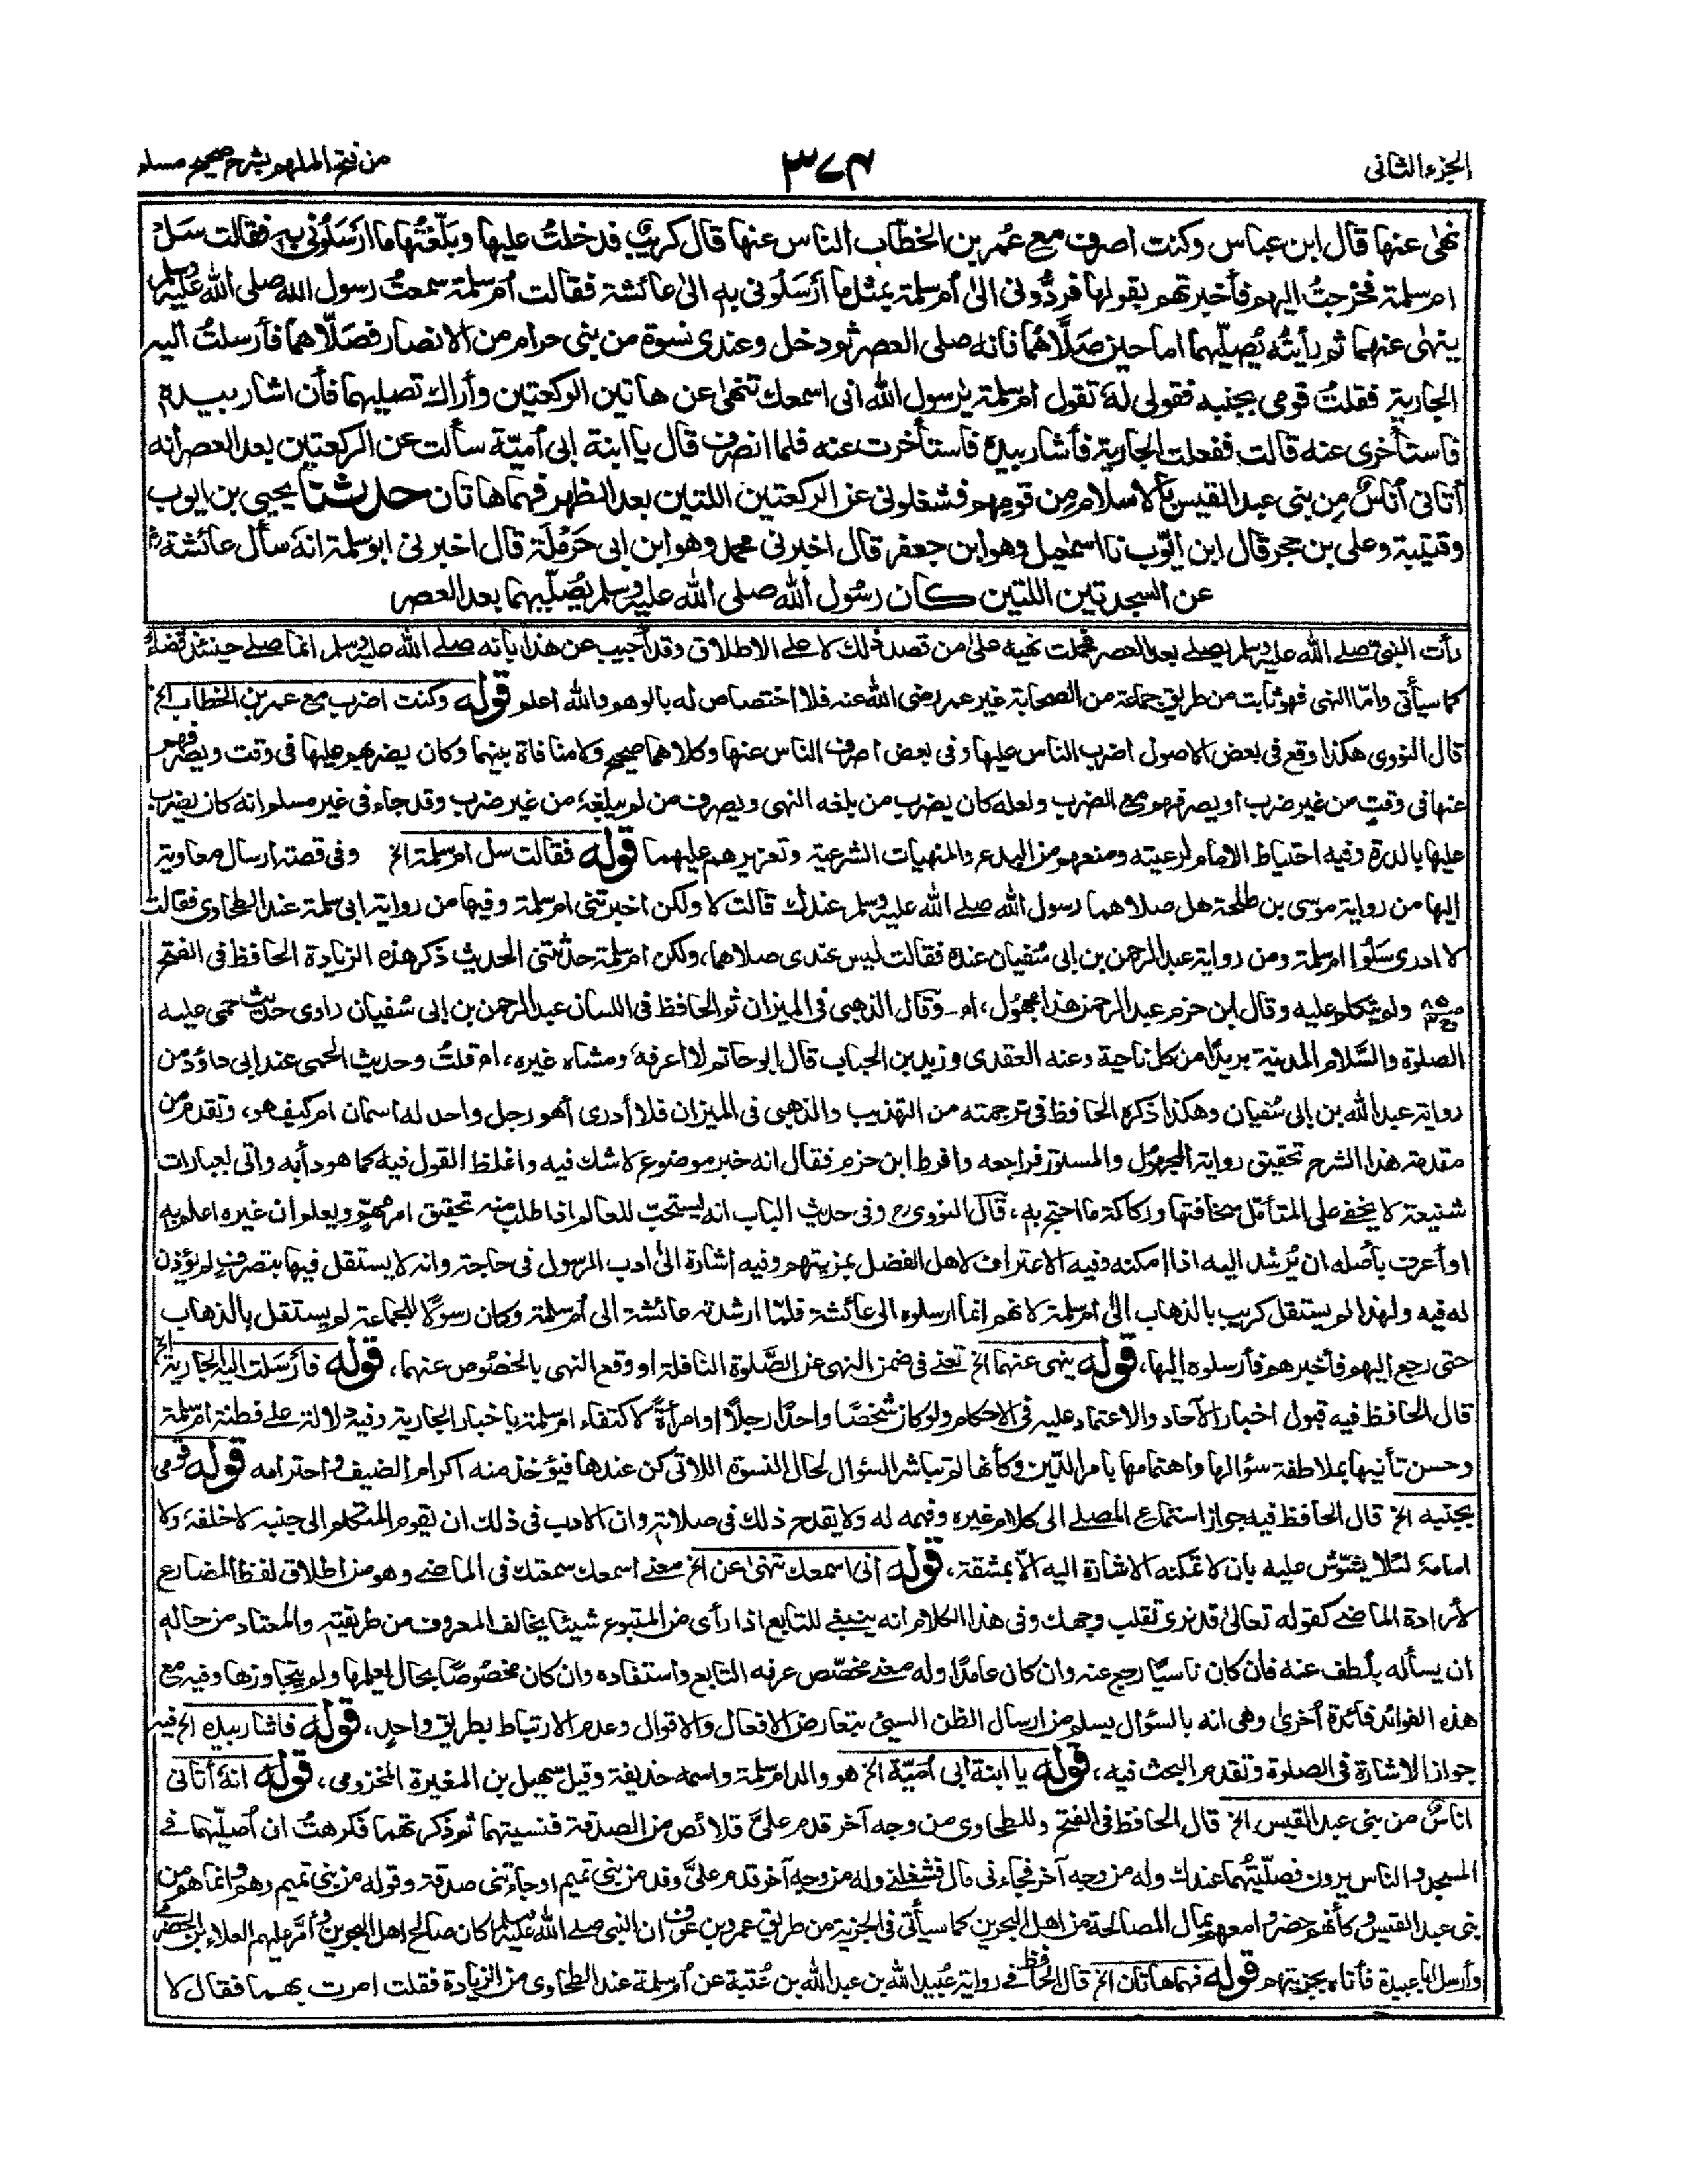 الجزء الثانى
٣٧٤
من فتح الملهم بشرح صحيح مسلم
نهى عنها قال ابن عباس وكنت اصرف مع عُمر بن الخطّاب الناس عنها قال كريبٌ فدخلتُ عليها وبلّغتُها ما ارْسَلُونى به فقالت سَلْ
ام سلمة فخرجتُ اليهم فأخبرتهم بقولها فردُّونى الىٰ أم سلمة بمثل ما أرْسَلُونى به الىٰ عائشة فقالت أم سلمة سمعتُ رسول الله صلى الله عليه وسلم
ينهىٰ عنهما ثم رأيتُه يُصلّيهما اما حين صَلَّاهُما فانه صلى العصر ثم دخل وعندى نسوة من بنى حرام من الانصار فصَلّاهما فأرسلتُ اليه
الجارية فقلتُ قومى بجنبه فقولى لهٗ تقول ام سلمة يٰرسول الله انى اسمعك تنهىٰ عن هاتين الركعتين وأراك تصليهما فأن اشار بيده
فاستأخرى عنه قالت ففعلت الجارية فأشار بيده فاستأخرت عنه فلما انصرف قال يا ابنة ابى أميّة سألت عن الركعتين بعد العصر أنه
أتانى أناسٌ مِن بنى عبد القيس بالاسلام مِن قومهم فشغلونى عن الركعتين اللتين بعد الظهر فهما هاتان حدثنا يحيى بن ايوب
وقتيبة وعلى بن حجر قال ابن ايّوب نا اسمٰعيل وهو ابن جعفر قال اخبرنى محمد وهو ابن ابى حَرْمَلَة قال اخبرنى ابو سلمة انهٗ سأل عائشة
عن السجدتين اللتين كان رسُول الله صلى الله عليه وسلم يُصلّيهما بعد العصر
رأت النبى صلى الله عليه وسلم يصلى بعد العصر فحملت نهيه على من قصد ذلك لا على الاطلاق وقد اجيب عن هذا بانه صلى الله عليه وسلم انما صلى حينئذ قضاءً
كما سيأتى واما النهى فهو ثابت من طريق جماعة من الصحابة غير عمر رضى الله عنه فلا اختصاص له بالوهم والله اعلم قوله وكنت اضرب مع عمر بن الخطاب الخ
قال النووى هكذا وقع فى بعض الاصول اضرب الناس عليها وفى بعض اصرف الناس عنها وكلاهما صحيح ولا منافاة بينهما وكان يضربهم عليها فى وقت ويصرفهم
عنها فى وقتٍ من غير ضرب أو يصرفهم مع الضرب ولعله كان يضرب من بلغه النهى ويصرف من لم يبلغهٗ من غير ضرب وقد جاء فى غير مسلم انه كان يضرب
عليها بالدرة وفيه احتياط الامام لرعيته ومنعهم من البدع والمنهيات الشرعية وتعزيرهم عليهما قوله فقالت سل ام سلمة الخ وفى قصة ارسال معاوية
اليها من رواية موسى بن طلحة هل صلاهما رسول الله صلى الله عليه وسلم عندك قالت لا ولكن اخبرتنى ام سلمة وفيها من رواية ابى سلمة عند الطحاوى فقالت
لا ادرى سَلُوا ام سلمة ومن رواية عبد الرحمن بن ابى سُفيان عنده فقالت ليس عندى صلاهما، ولكن ام سلمة حدثتنى الحديث ذكر هذه الزيادة الحافظ فى الفتح
ولم يتكلم عليه وقال ابن حزم عبد الرحمن هذا مجهُول، اهـ وقال الذهبى فى الميزان ثم الحافظ فى اللسان عبد الرحمن بن ابى سُفيان راوى حديث حمى عليه
الصلوة والسَّلام المدينة بريدًا من كل ناحية وعنه العقدى وزيد بن الحباب قال ابو حاتم لا اعرفهٗ ومشاه غيره، اه قلتُ وحديث الحمى عند ابى داؤد من
رواية عبد الله بن ابى سُفيان وهكذا ذكره الحافظ فى ترجمته من التهذيب والذهبى فى الميزان فلا أدرى أهو رجل واحد له اسمان ام كيف هو، وتقدم من
مقدمة هذا الشرح تحقيق رواية المجهول والمستور فراجعه وافرط ابن حزم فقال انه خبر موضوع لا شك فيه واغلظ القول فيه كما هو دأبه واتى بعبارات
شنيعة لا يخفى على المتأمّل سخافتها وركاكة ما احتج به، قال النووى رح وفى حديث الباب انه يستحبّ للعالم اذا طلب منه تحقيق امر مُهمّ ويعلم ان غيره اعلم به
او أعرف بأصله ان يُرشد اليه اذا امكنه وفيه الاعتراف لاهل الفضل بمزيتهم وفيه اشارة الىٰ ادب الرسول فى حاجة وانه لا يستقل فيها بتصرفٍ لم يؤذن
له فيه ولهذا لم يستقل كريب بالذهاب الىٰ ام سلمة لانهم انما ارسلوه الى عائشة فلمّا ارشدته عائشة الى أم سلمة وكان رسولًا للجماعة لم يستقل بالذهاب
حتى رجع اليهم فأخبرهم فأرسلوه اليها، قوله ينهى عنهما الخ تعنى فى ضمن النهى عن الصَّلوة النافلة او وقع النهى بالخصُوص عنهما، قوله فأرسَلت اليه الجارية الخ
قال الحافظ فيه قبول اخبار الآحاد والاعتماد عليه فى الاحكام ولو كان شخصًا واحدًا رجلًا او امرأةً لاكتفاء ام سلمة باخبار الجارية وفيه دلالة على فطنة ام سلمة
وحسن تأنيها بملاطفة سؤالها واهتمامها بامر الدّين وكأنها لم تباشر السؤال لحال النسوة اللاتى كن عندها فيؤخذ منه اكرام الضيف واحترامه قوله قومى
بجنبيه الخ قال الحافظ فيه جواز استماع المصلى الى كلام غيره وفهمه له ولا يقدح ذلك فى صلاته وان الادب فى ذلك ان يقوم المتكلم الى جنبه لا خلفهٗ ولا
امامهٗ لئلا يشوّش عليه بان لا تمكنه الاشارة اليه الّا بمشقة، قوله انى اسمعك تنهىٰ عن الخ معنى اسمعك سمعتك فى الماضى وهو من اطلاق لفظ المضارع
لارادة الماضى كقوله تعالىٰ قد نرى تقلب وجهك وفى هذا الكلام انه ينبغى للتابع اذا رأى من المتبوع شيئا يخالف المعروف من طريقته والمعتاد من حاله
ان يسأله بلُطف عنه فان كان ناسيًا رجع عنه وان كان عامدًا وله معنى مخصّص عرفه التابع واستفاده وان كان مخصُوصًا بحال يعلمها ولم يتجاوزها وفيه مع
هذه الفوائد فائدة أخرىٰ وهى انه بالسؤال يسلم من ارسال الظن السيئ بتعارض الافعال والاقوال وعدم الارتباط بطريق واحدٍ، قوله فاشار بيده الخ فيه
جواز الاشارة فى الصلوة وتقدم البحث فيه، قوله يا ابنة ابى أميّة الخ هو والد ام سلمة واسمه حذيفة وقيل سهيل بن المغيرة المخزومى، قوله انهٗ أتانى
اناسٌ من بنى عبد القيس الخ قال الحافظ فى الفتح وللطحاوى من وجه آخر قدم علىّ قلائص من الصدقة فنسيتهما ثم ذكرتهما فكرهتُ ان أصلّيهما فى
المسجد والناس يرون فصلّيتُهما عندك وله من وجه آخر فجاءنى مال فشغلنى وله من وجهٍ آخر قدم علىَّ وفد من بنى تميم او جاءتنى صدقة وقوله من بنى تميم وهم وانما هم من
بنى عبد القيس وكأنهم حضروا معهم بمال المصالحة من اهل البحرين كما سيأتى فى الجزية من طريق عمرو بن عوف ان النبى صلى الله عليه وسلم كان صالح اهل البحرين وأمَّر عليهم العلاء بن الحضرمى
وأرسل ابا عبيدة فأتاه بجزيتهم قوله فهما هاتان الخ قال الحافظ فى رواية عُبيد الله بن عبد الله بن عُتبة عن أم سلمة عند الطحاوى من الزيادة فقلت امرت بهما فقال لا